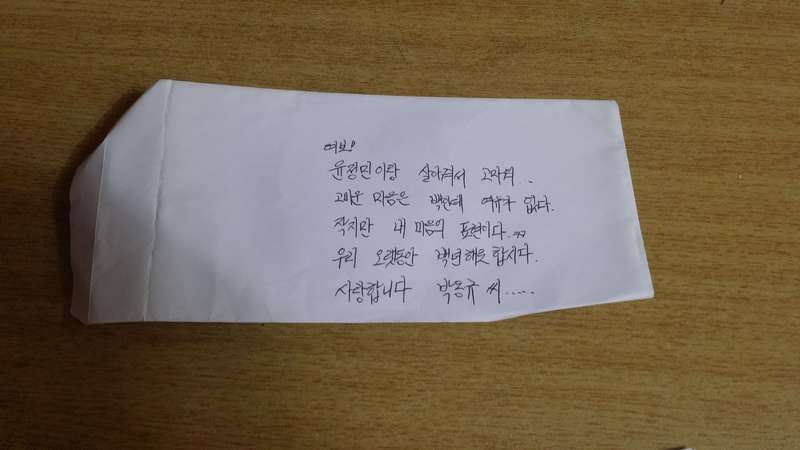 여보!
윤정민이랑 살아줘서 고마워..
고마운 마음은 백만데 여유가 없다.
작지만 내 마음의 표현이다.^^
우리 오랫동안 백년해로 합시다.
사랑합니다 박동규 씨.....